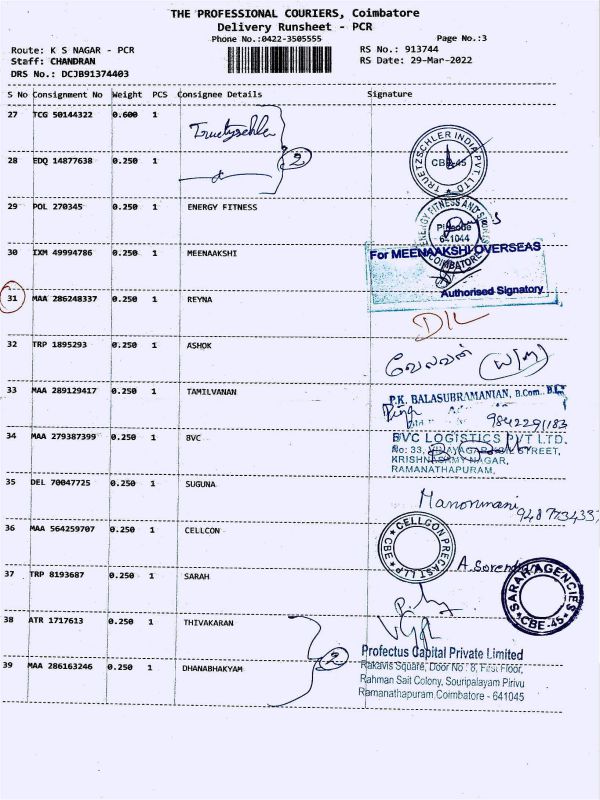 THE PROFESSIONAL COURIERS, Coimbatore
Delivery Runsheet - PCR
Phone No.:0422-3505555 Page No.:3
Route: K S NAGAR - PCR RS No.: 913744
Staff: CHANDRAN RS Date: 29-Mar-2022
DRS No.: DCJB91374403
S No Consignment No Weight PCS Consignee Details Signature
27 TCG 50144322 0.600 1
28 EDQ 14877638 0.250 1 2 TRUETZSCHLER INDIA PVT. LTD CBE-45
29 POL 270345 0.250 1 ENERGY FITNESS ENERGY FITNESS AND Pincode 641044 COIMBATORE
30 IXM 49994786 0.250 1 MEENAAKSHI For MEENAAKSHI OVERSEAS
Authorised Signatory
31 MAA 286248337 0.250 1 REYNA D/L
32 TRP 1895293 0.250 1 ASHOK வேலவன் W/M
33 MAA 289129417 0.250 1 TAMILVANAN P.K. BALASUBRAMANIAN, B.Com., B.L.
9842291183
34 MAA 279387399 0.250 1 BVC BVC LOGISTICS PVT LTD.
No: 33, STREET,
KRISHNASAMY NAGAR,
RAMANATHAPURAM,
35 DEL 70047725 0.250 1 SUGUNA Manonmani
36 MAA 564259707 0.250 1 CELLCON CELLCON PRECAST LLP CBE
37 TRP 8193687 0.250 1 SARAH SARAH AGENCIES CBE-45
38 ATR 1717613 0.250 1 THIVAKARAN
39 MAA 286163246 0.250 1 DHANABHAKYAM 2 Profectus Capital Private Limited
Rakavis Square, Door No : 8, First Floor,
Rahman Sait Colony, Souripalayam Pirivu
Ramanathapuram, Coimbatore - 641045